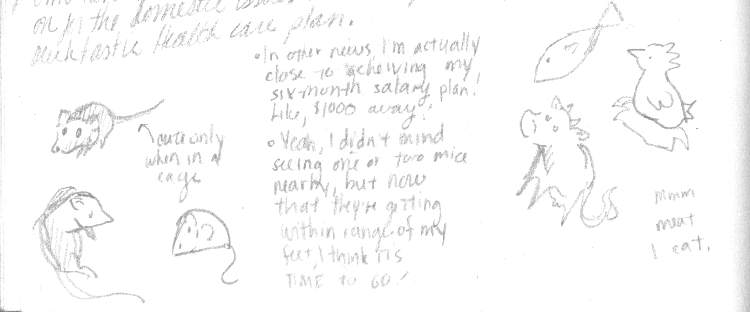 on in the domestic issues
Health care plan.
• In other news, I'm actually
close to acheiving my
six-month salary plan!
Like, $1000 away!
• Yeah, I didn't mind
seeing one or two mice
nearby, but now
that they're getting
within range of my
feet, I think it's
TIME TO GO!
cute only
when in a
cage
mmm
meat
I eat.